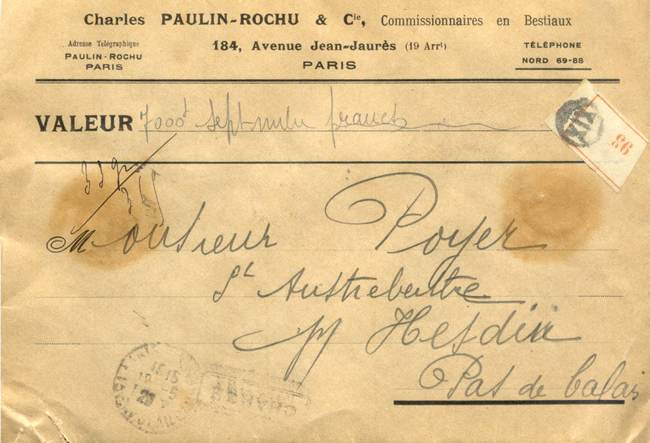 Charles PAULIN-ROCHU & Cie, Commissionnaires en Bestiaux
Adresse Télégraphique
PAULIN-ROCHU
PARIS
184, Avenue Jean-Jaurès (19 Arrt)
PARIS
TÉLÉPHONE
NORD 69-88
VALEUR 7000f sept mille francs
XIX
86
Monsieur Poyer
St Austreberthe
p Hesdin
Pas de Calais
CHARGÉ